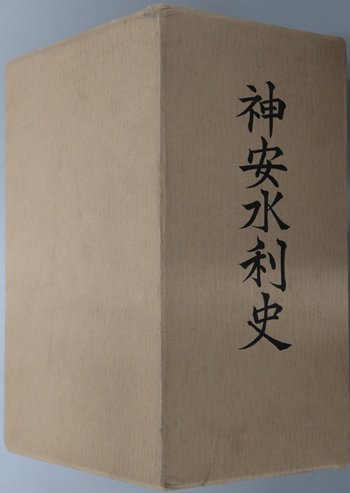 神安水利史